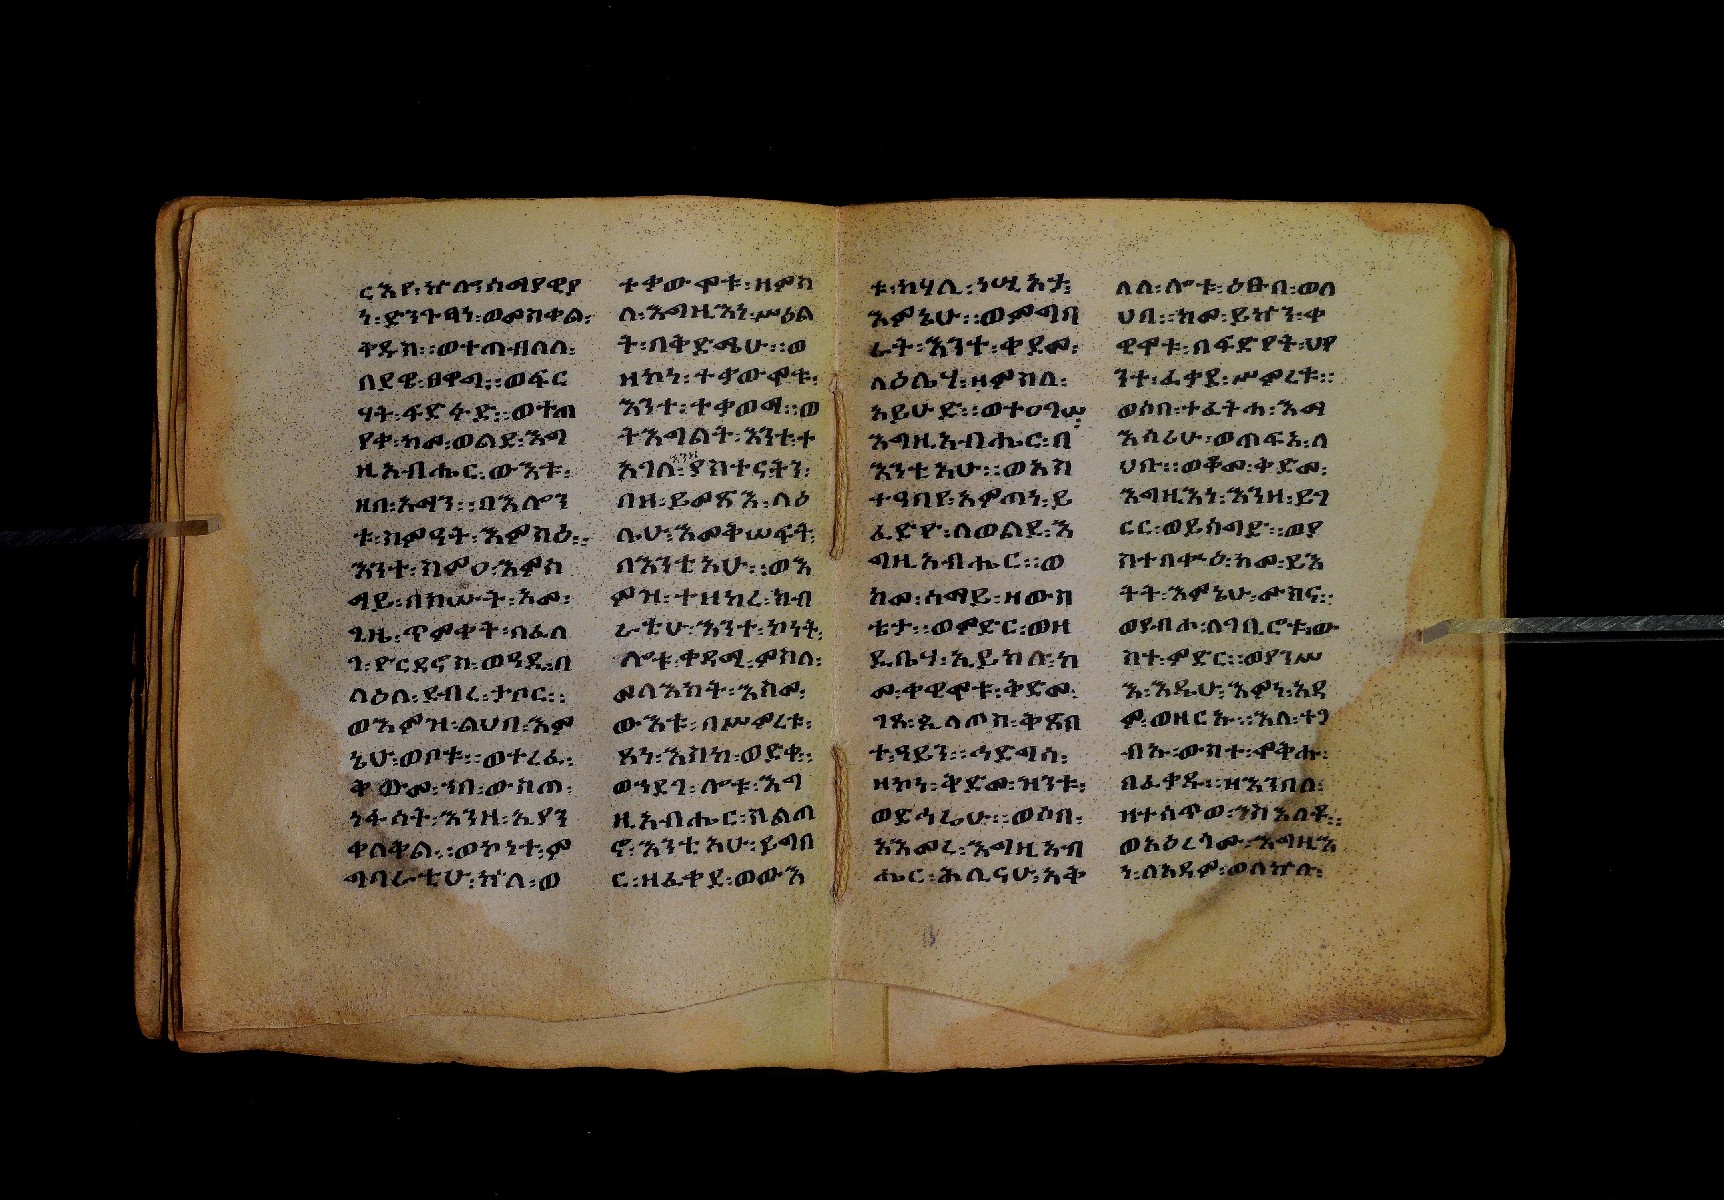 ርእየ፡ኵሎን፡ሰማያዊያ
ን፡ድንጉፃነ፡ወመስቀል፡
ቅዱስ፡፡ወተጠብለለ፡
በደዊ፡ፀዋግ፡፡ወፍር
ሃት፡ፍድፉድ፡፡ወተጠ
የቀ፡ከመ፡ወልደ፡እግ
ዚአብሔር፡ውእቱ፡
ዘበ፡አማን፡፡በእሎን
ቱ፡ስምዓት፡እምከዕ፡፡
እንተ፡ሰምዐ፡እምሰ
ማይ፡በከሡት፡አመ፡
ጊዜ፡ጥምቀት፡በፈለ
ገ፡ዮርዳኖስ፡ወዓዲ፡በ
ላዕለ፡ደብረ፡ታቦር፡፡
ወእምዝ፡ልህበ፡እም
ኔሁ፡ወቦቱ፡፡ወተረፈ፡
ቅውመ፡ንበ፡ውስጠ፡
ነፋሳት፡እንዘ፡ኢያን
ቀለቅል፡፡ወኮነት፡ም
ግባራቲሁ፡ኵለ፡ወ
ተቃውሞቱ፡ዘምስ
ለ፡እግዚእነ፡ሥዕል
ት፡በቅድሜሁ፡፡ወ
ዘኮነ፡ተቃውሞቱ፡
እንተ፡ተቃወማ፡፡ወ
ትእግልት፡እንተ፡ተ
አገለ፡ያስተርትን፡
በዘ፡ይመጽእ፡ላዕ
ሌሁ፡እመቅሠፍት፡
በእንቲአሁ፡፡ወእ
ምዝ፡ተዘከረ፡ክብ
ራቲሁ፡እንተ፡ኮነት፡
ሎቱ፡ቀዳሚ፡ምስለ፡
መላእክት፡እስመ፡
ውእቱ፡በሥምረቱ፡
ጸነ፡እስከ፡ወድቀ፡
ወኀደገ፡ሎቱ፡እግ
ዚአብሔር፡ሥልጣ
ኖ፡እንቲአሁ፡ይግበ
ር፡ዘፈቀደ፡ወውእ
ቱ፡ከሃሊ፡ነሢእታ፡
እምኔሁ፡፡ወምግባ
ራት፡እንተ፡ቀደመ፡
ላዕሌሃ፡ዘምስለ፡
አይሁድ፡፡ወተዐገሠ፡
እግዚአብሔር፡በ
እንቲአሁ፡፡ወአስ
ተዓበየ፡አምጣነ፡ይ
ፈድዮ፡ለወልደ፡እ
ግዚአብሔር፡፡ወ
ከመ፡ሰማይ፡ዘውስ
ቴታ፡፡ወምድር፡ወዘ
ዲቤሃ፡ኢይክሉ፡ከ
መ፡ቀዊሞቱ፡ቅድመ፡
ገጹ፡ዲለጦስ፡ቅጽበ
ተ፡ዓይን፡፡ኃድግሰ፡
ዘኮነ፡ቅድመ፡ዝንቱ፡
ወደኃሬሁ፡፡ወሶበ፡
አእመረ፡እግዚአብ
ሔር፡ሕሊናሁ፡አቅ
ለለ፡ሎቱ፡ዕፁበ፡ወለ
ሀበ፡፡ከመ፡ይኵን፡ቀ
ዊሞቱ፡በፍድየት፡ህየ
ንተ፡ፈቀደ፡ሥምረቱ፡፡
ወሶበ፡ተፈትሐ፡እማ
እሰሪሁ፡ወጠፍአ፡ለ
ሀቡ፡፡ወቆመ፡ቅድመ፡
እግዚእነ፡እንዘ፡ይገ
ርር፡ወይሰግድ፡፡ወያ
ስተበቍዕ፡ከመ፡ይእ
ትት፡እምኔሁ፡ሙስና፡፡
ወያብሖ፡ለገቢሮቱ፡ው
ስተ፡ምድር፡፡ወያንሥ
እ፡እዴሁ፡እምነ፡አዳ
ም፡ወዘርኡ፡፡እለ፡ተገ
ብኡ፡ውስተ፡ሞቅሐ፡
በፈቃዱ፡፡ዘእንበለ፡
ዘተሰጥወ፡ንስእለቶ፡፡
ወአዕረጎሙ፡እግዚእ
ነ፡ለአዳም፡ወለኵሉ፡